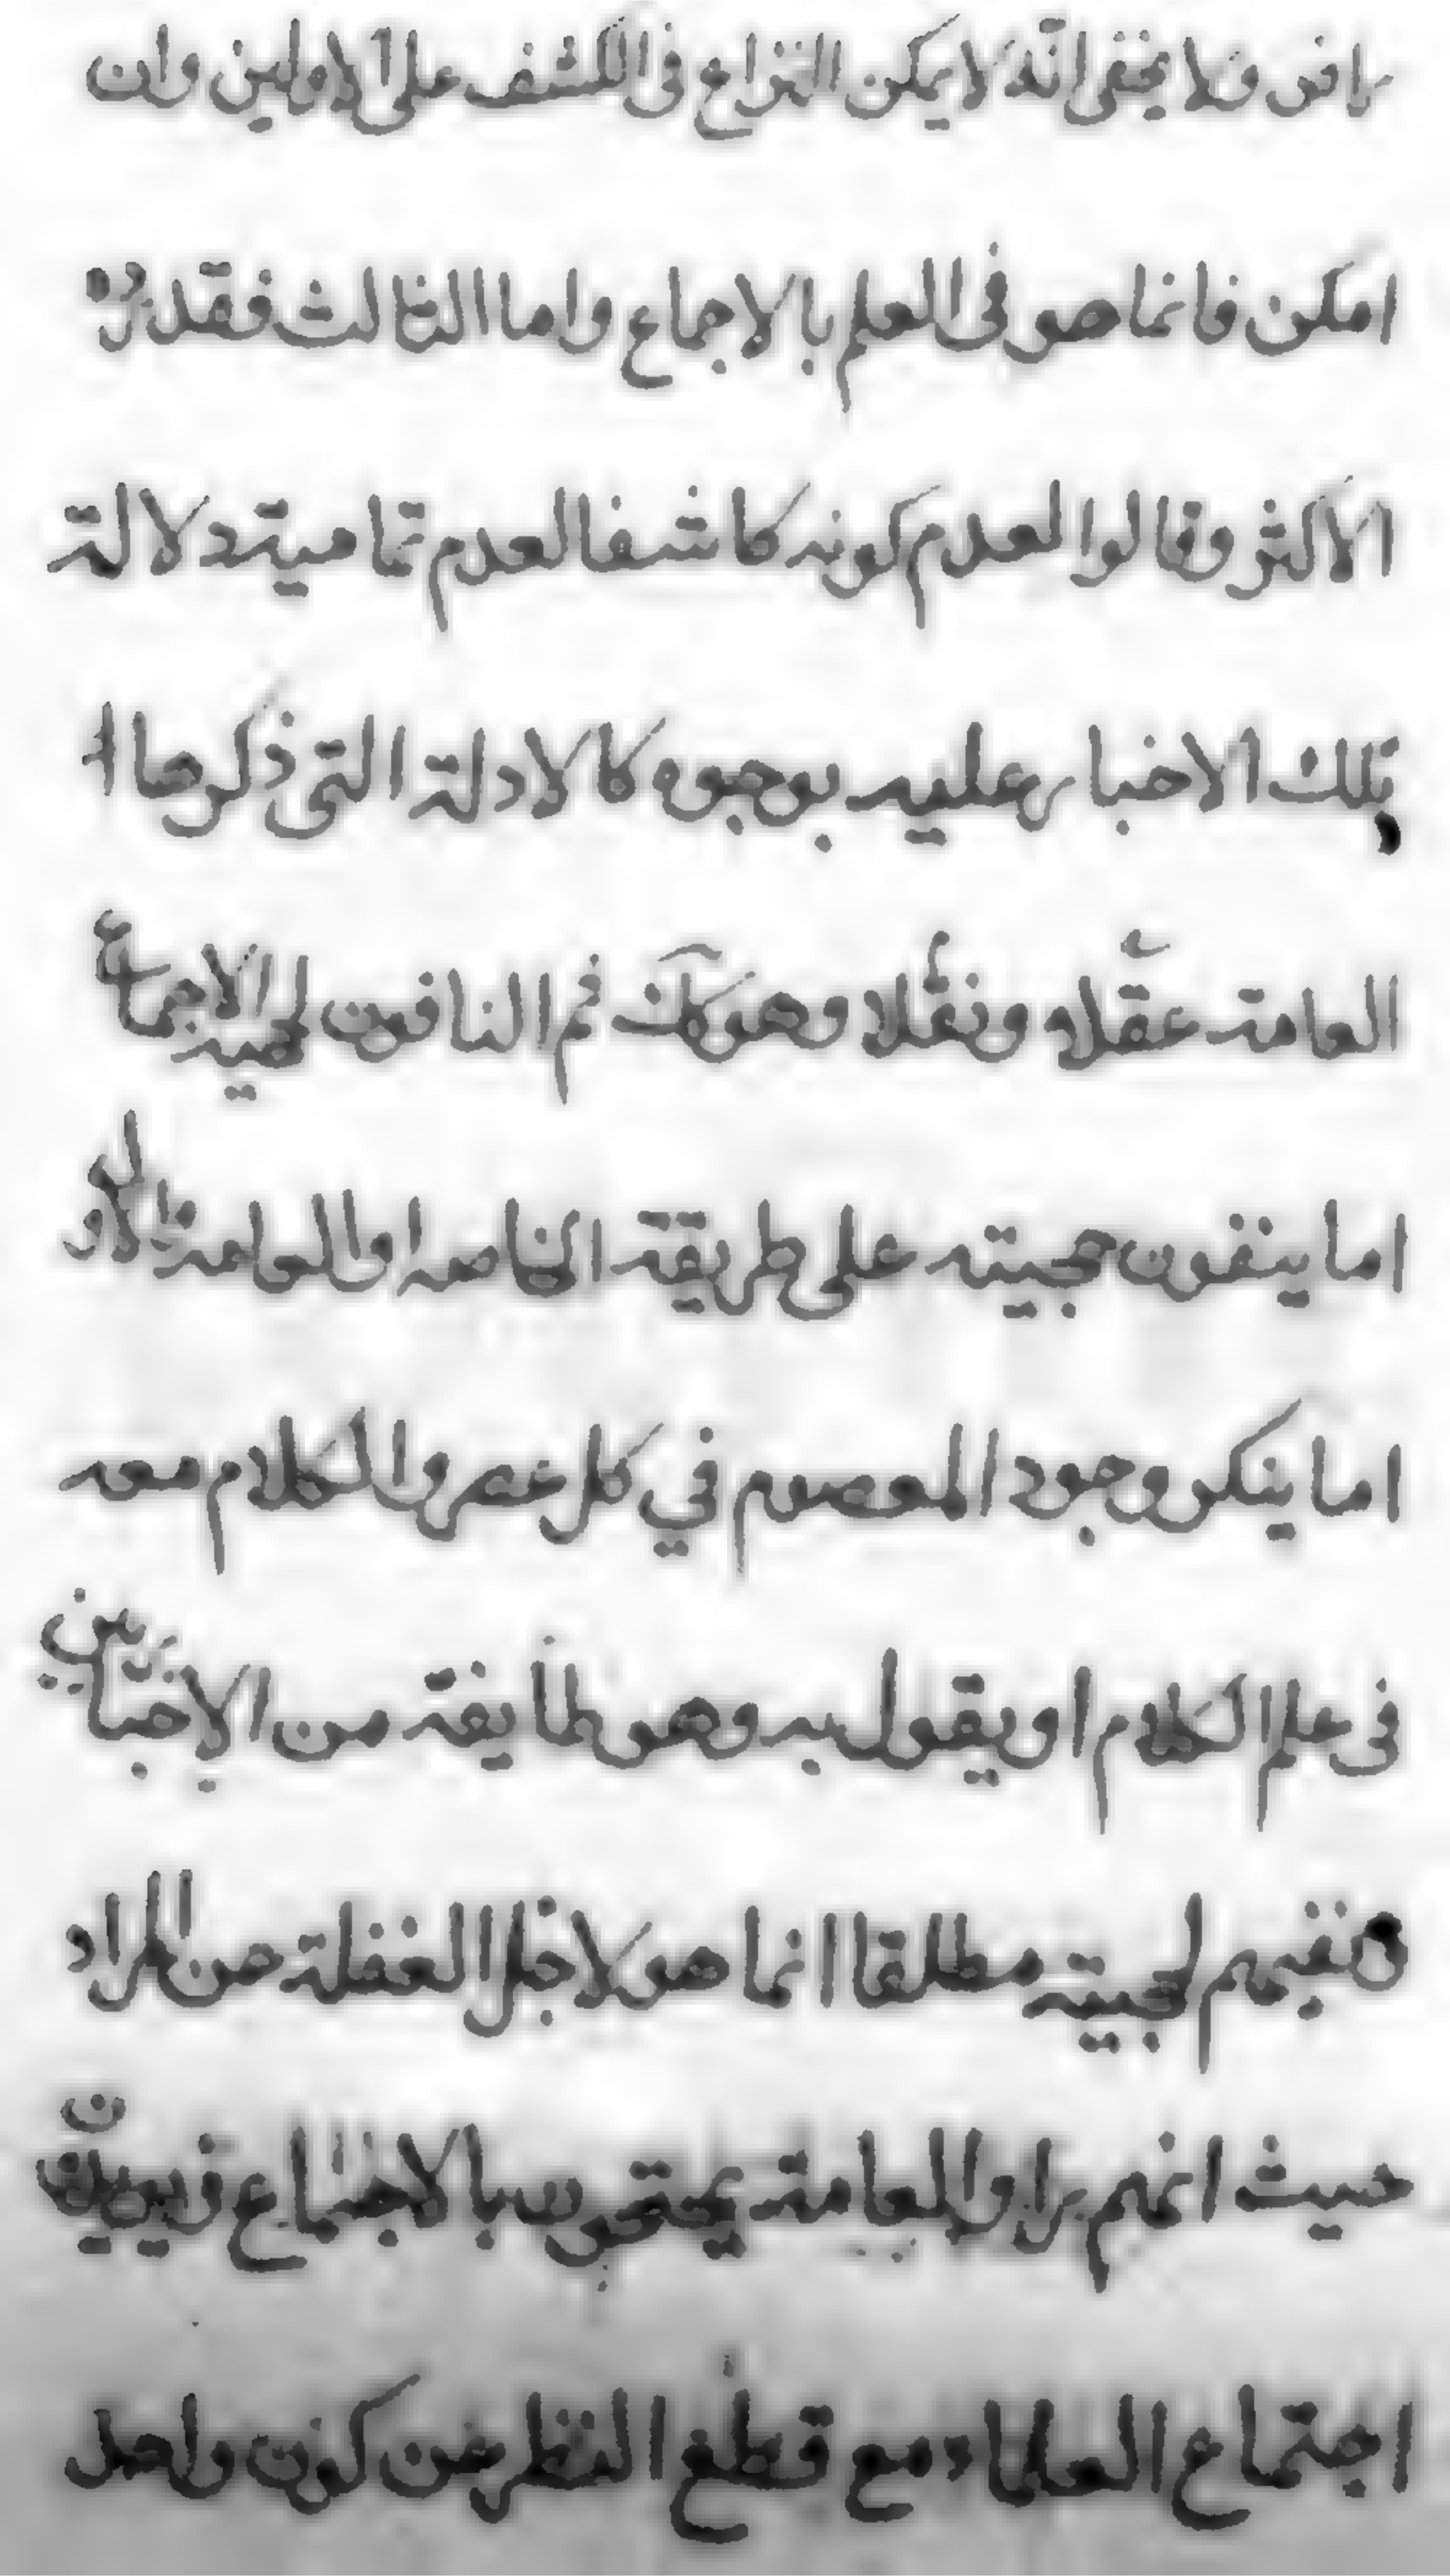 رافق ولا يخفى انّه لا يمكن النزاع فى الكشف على الاولين وان
امكن فانما هو فى العلم بالاجماع واما الثالث فقد
الاكثر وقالوا لعدم كونه كاشفا لعدم تمامية دلالة
تلك الاخبار عليه بوجوه كالادلة التى ذكرها
العامة عقلا ونقلا وهو كك ثم النافون لحجية الاجماع
اما ينفون حجيته على طريقة الخاصة او العامة والاول
اما ينكر وجود المعصوم في كل عصر والكلام معه
فى علم الكلام او يقول به وهو طايفة من الاخباريين
ونفيهم لحجيته مطلقا انما هو لاجل الغفلة عن المراد
حيث انهم راوا العامة يحتجون بالاجماع ويريدون
اجتماع العلماء مع قطع النظر عن كون واحد